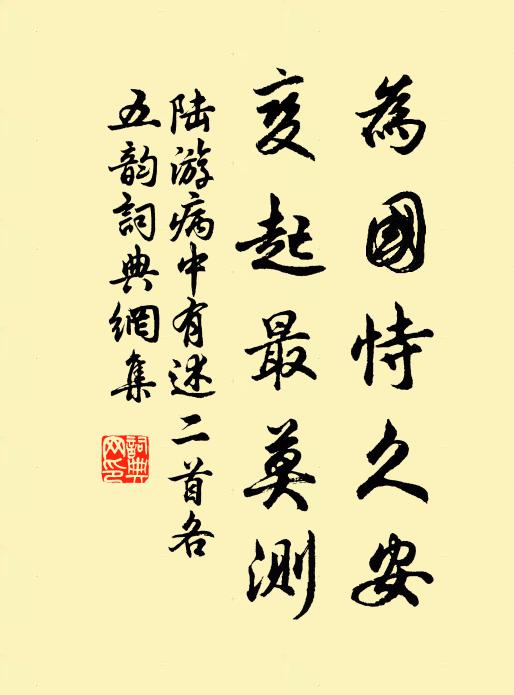 為國恃久安
变起最莫測
陆游病中有述二首各
五韵詞典網集
詞典网印